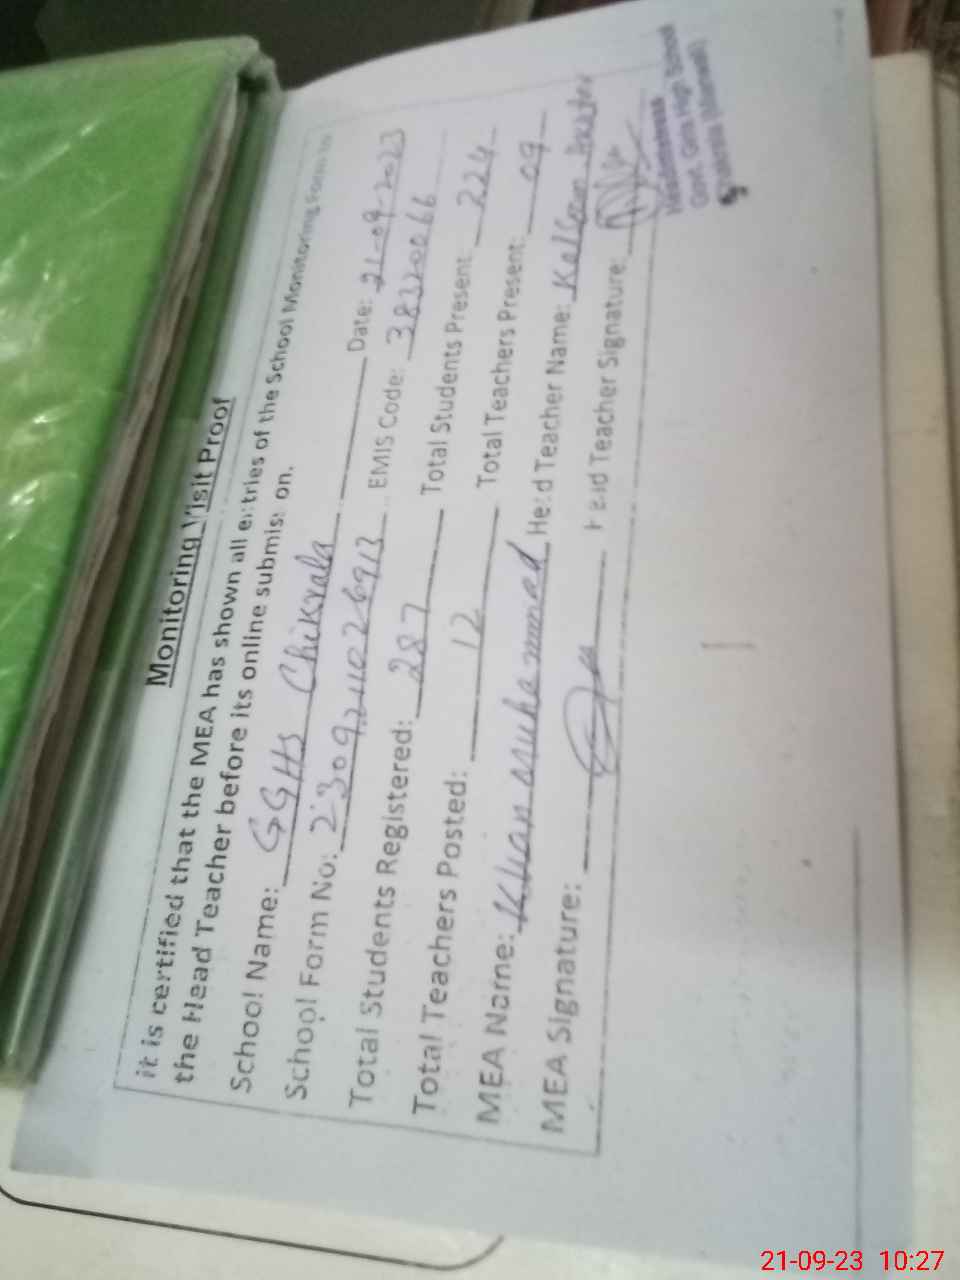 Monitoring Visit Proof
it is certified that the MEA has shown all entries of the School Monitoring Form to
the Head Teacher before its online submission.
School Name: GGHS Chikrala Date: 21-09-2023
School Form No: 2309211026913 EMIS Code: 38320066
Total Students Registered: 287 Total Students Present: 224
Total Teachers Posted: 12 Total Teachers Present: 09
MEA Name: Khan Muhammad Head Teacher Name:
MEA Signature: Head Teacher Signature:
Headmistress
Govt. Girls High School
21-09-23 10:27